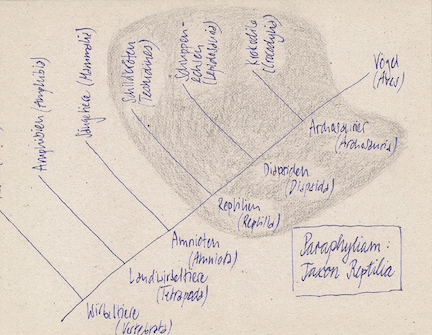 Amphibien (Amphibia)
Säugetiere (Mammalia)
Schildkröten
(Testudines)
Schuppen-
echsen
(Lepidosauria)
Krokodile
(Crocodylia)
Vögel
(Aves)
Archosaurier
(Archosauria)
Diapsiden
(Diapsida)
Reptilien
(Reptilia)
Amnioten
(Amniota)
Landwirbeltiere
(Tetrapoda)
Wirbeltiere
(Vertebrata)
Paraphylum:
Taxon Reptilia